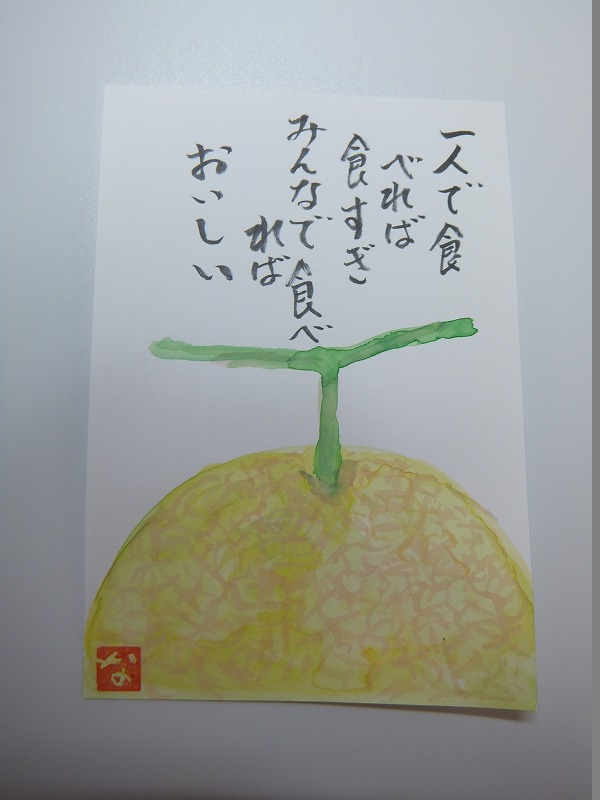 一人で食
べれば
食すぎ
みんなで食べ
れば
おいしい
な